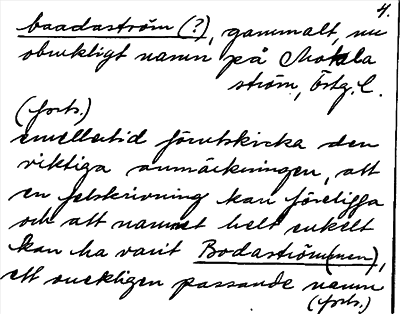 4.
baadaström (?), gammalt, nu
obrukligt namn på Motala
ström, Östg. l.
(forts.)
emellertid förutskicka den
viktiga anmärkningen, att
en felskrivning kan föreligga
och att namnet helt enkelt
kan ha varit Bodaström(men),
ett onekligen passande namn
(forts.)